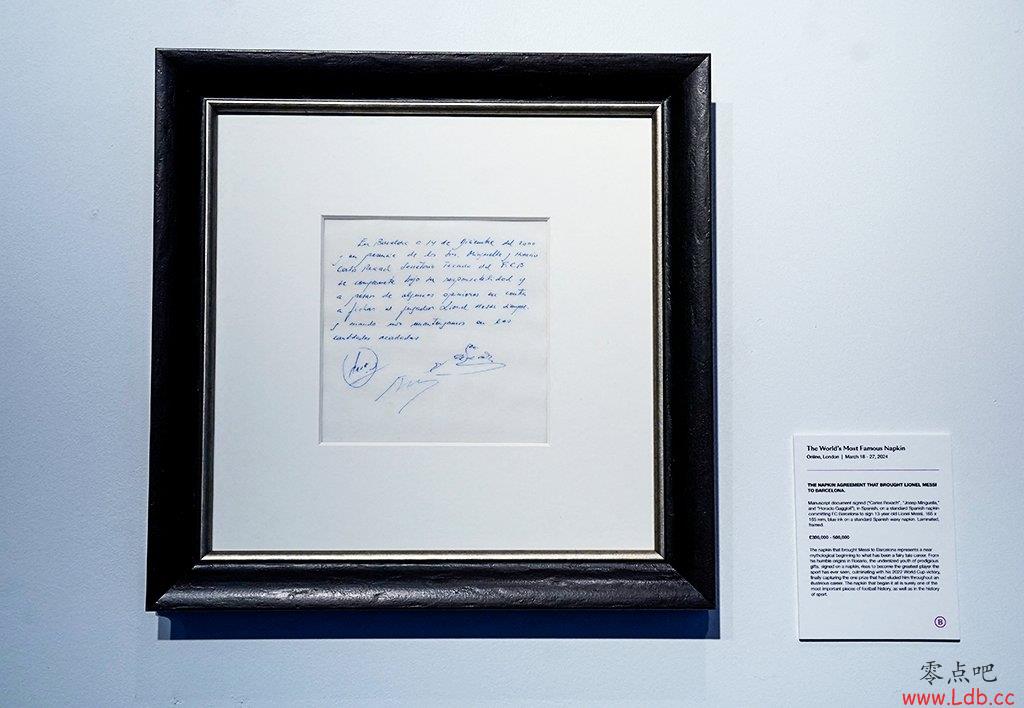 En Barcelona a 14 de Diciembre del 2000
y en presencia de los Srs. Minguella y Horacio
Carles Rexach Secretario Tecnico del F.C.B
se compromete bajo su responsabilidad y
a pesar de algunas opiniones en contra
a fichar al jugador Lionel Messi siempre
y cuando nos mantengamos en las
cantidades acordadas
The World's Most Famous Napkin
Online, London | March 18 - 27, 2024
THE NAPKIN AGREEMENT THAT BROUGHT LIONEL MESSI
TO BARCELONA.
Manuscript document signed ("Carles Rexach", "Josep Minguella,"
and "Horacio Gaggioli"), in Spanish, on a standard Spanish napkin
committing FC Barcelona to sign 13 year old Lionel Messi, 165 x
165 mm, blue ink on a standard Spanish waxy napkin. Laminated,
framed.
£300,000 - 500,000
The napkin that brought Messi to Barcelona represents a near
mythological beginning to what has been a fairy tale career. From
his humble origins in Rosario, the undersized youth of prodigious
gifts, signed on a napkin, rises to become the greatest player the
sport has ever seen, culminating with his 2022 World Cup victory,
finally capturing the one prize that had eluded him throughout an
illustrious career. The napkin that began it all is surely one of the
most important pieces of football history, as well as in the history
of sport.
B
零点吧
www.Ldb.cc